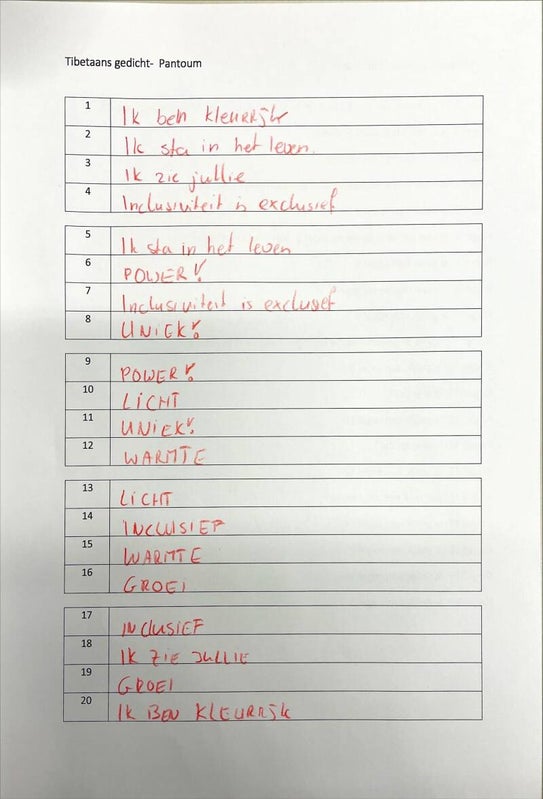 Tibetaans gedicht- Pantoum
1 Ik ben kleurrijk
2 Ik sta in het leven.
3 Ik zie jullie
4 Inclusiviteit is exclusief
5 Ik sta in het leven
6 POWER!
7 Inclusiviteit is exclusief
8 UNIEK!
9 POWER!
10 LICHT
11 UNIEK!
12 WARMTE
13 LICHT
14 INCLUSIEF
15 WARMTE
16 GROEI
17 INCLUSIEF
18 IK ZIE JULLIE
19 GROEI
20 IK BEN KLEURRIJK